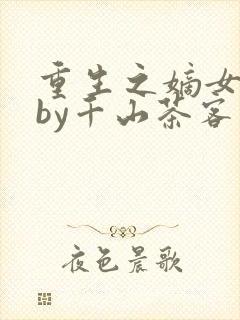 重生之嫡女
by千山茶客
夜色晨歌